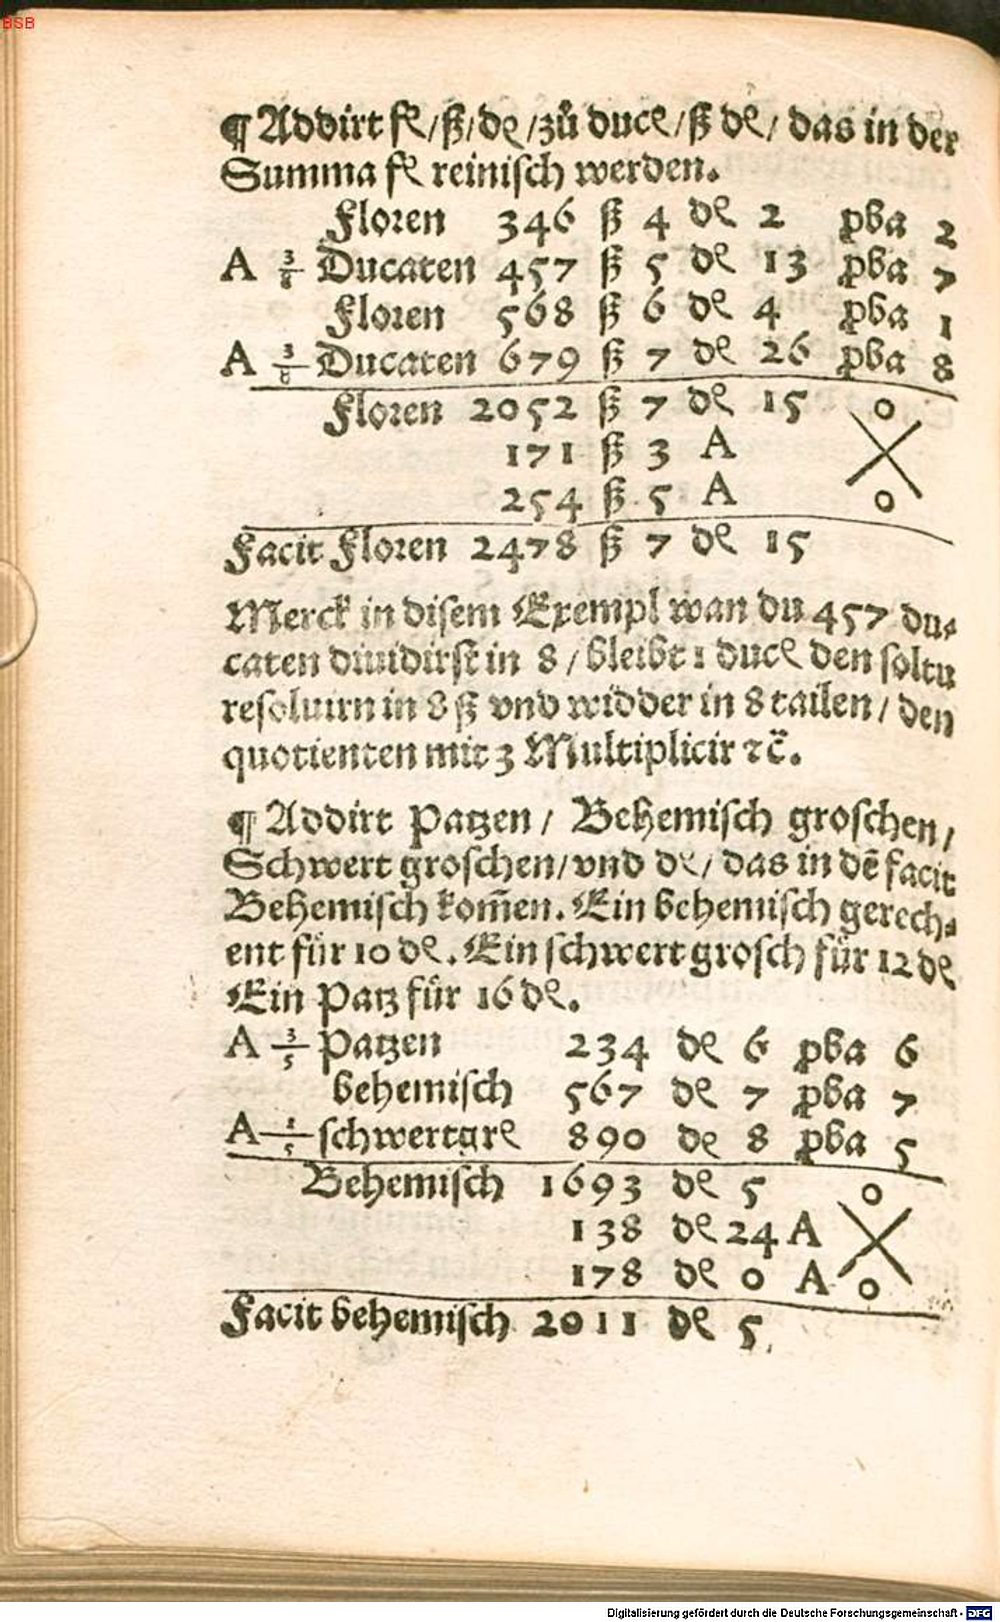 BSB
¶ Addirt fl/ß/dẹ/zů ducꝭ/ß dꝭ/ das in der
Summa fl reinisch werden.
Floren 346 ß 4 dꝭ 2 pba 2
A 3/8 Ducaten 457 ß 5 dꝭ 13 pba 7
Floren 568 ß 6 dꝭ 4 pba 1
A 3/8 Ducaten 679 ß 7 dꝭ 26 pba 8
Floren 2052 ß 7 dꝭ 15 0
171 ß 3 A
254 ß 5 A 0
Facit Floren 2478 ß 7 dꝭ 15
Merck in disem Exempl wan du 457 du⸗
caten diuidirst in 8/ bleibt 1 ducꝭ den soltu
resoluirn in 8 ß vnd widder in 8 tailen/ den
quotienten mit 3 Multiplicir ⁊c̃.
¶ Addirt Patzen/ Behemisch groschen/
Schwert groschen/vnd dꝭ/ das in dẽ facit
Behemisch kom̃en. Ein behemisch gerech⸗
ent für 10 dꝭ. Ein schwert grosch für 12 dꝭ
Ein Patz für 16 dꝭ.
A 3/5 Patzen 234 dꝭ 6 pba 6
behemisch 567 dꝭ 7 pba 7
A 1/5 schwertgrꝭ 890 dꝭ 8 pba 5
Behemisch 1693 dꝭ 5 0
138 dꝭ 24 A
178 dꝭ 0 A 0
Facit behemisch 2011 dꝭ 5.
Digitalisierung gefördert durch die Deutsche Forschungsgemeinschaft - DFG